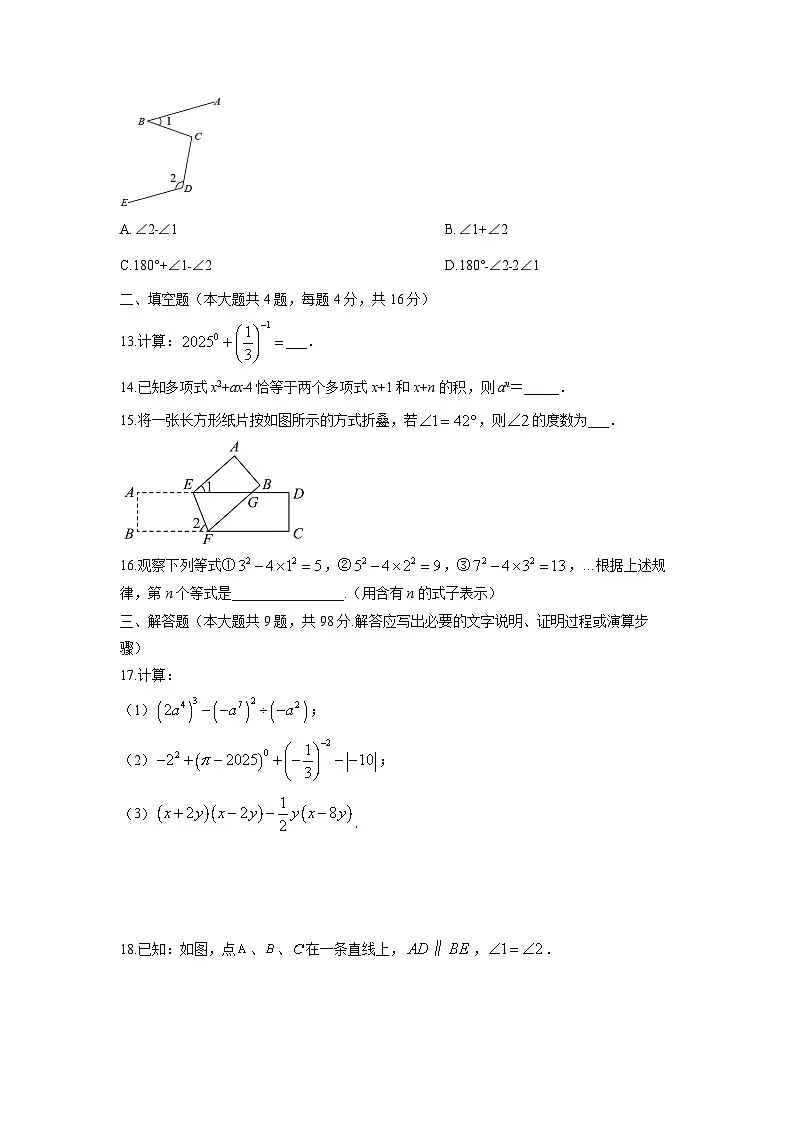 A
B
1
C
2
D
E
A.∠2-∠1
B.∠1+∠2
C.180°+∠1-∠2
D.180°-∠2-2∠1
二、填空题（本大题共4题，每题4分，共16分）
13.计算：2025⁰+(1/3)⁻¹=___.
14.已知多项式x²+ax-4恰等于两个多项式x+1和x+n的积，则aⁿ＝_____.
15.将一张长方形纸片按如图所示的方式折叠，若∠1=42°，则∠2的度数为___.
A
A E 1 B D
G
B 2 F C
16.观察下列等式①3²-4×1²=5，②5²-4×2²=9，③7²-4×3²=13，…根据上述规
律，第n个等式是________________.（用含有n的式子表示）
三、解答题（本大题共9题，共98分.解答应写出必要的文字说明、证明过程或演算步
骤）
17.计算：
（1）(2a⁴)³-(-a⁷)²÷(-a²)；
（2）-2²+(π-2025)⁰+(-1/3)⁻²-|-10|；
（3）(x+2y)(x-2y)-1/2y(x-8y).
18.已知：如图，点A、B、C在一条直线上，AD∥BE，∠1=∠2.